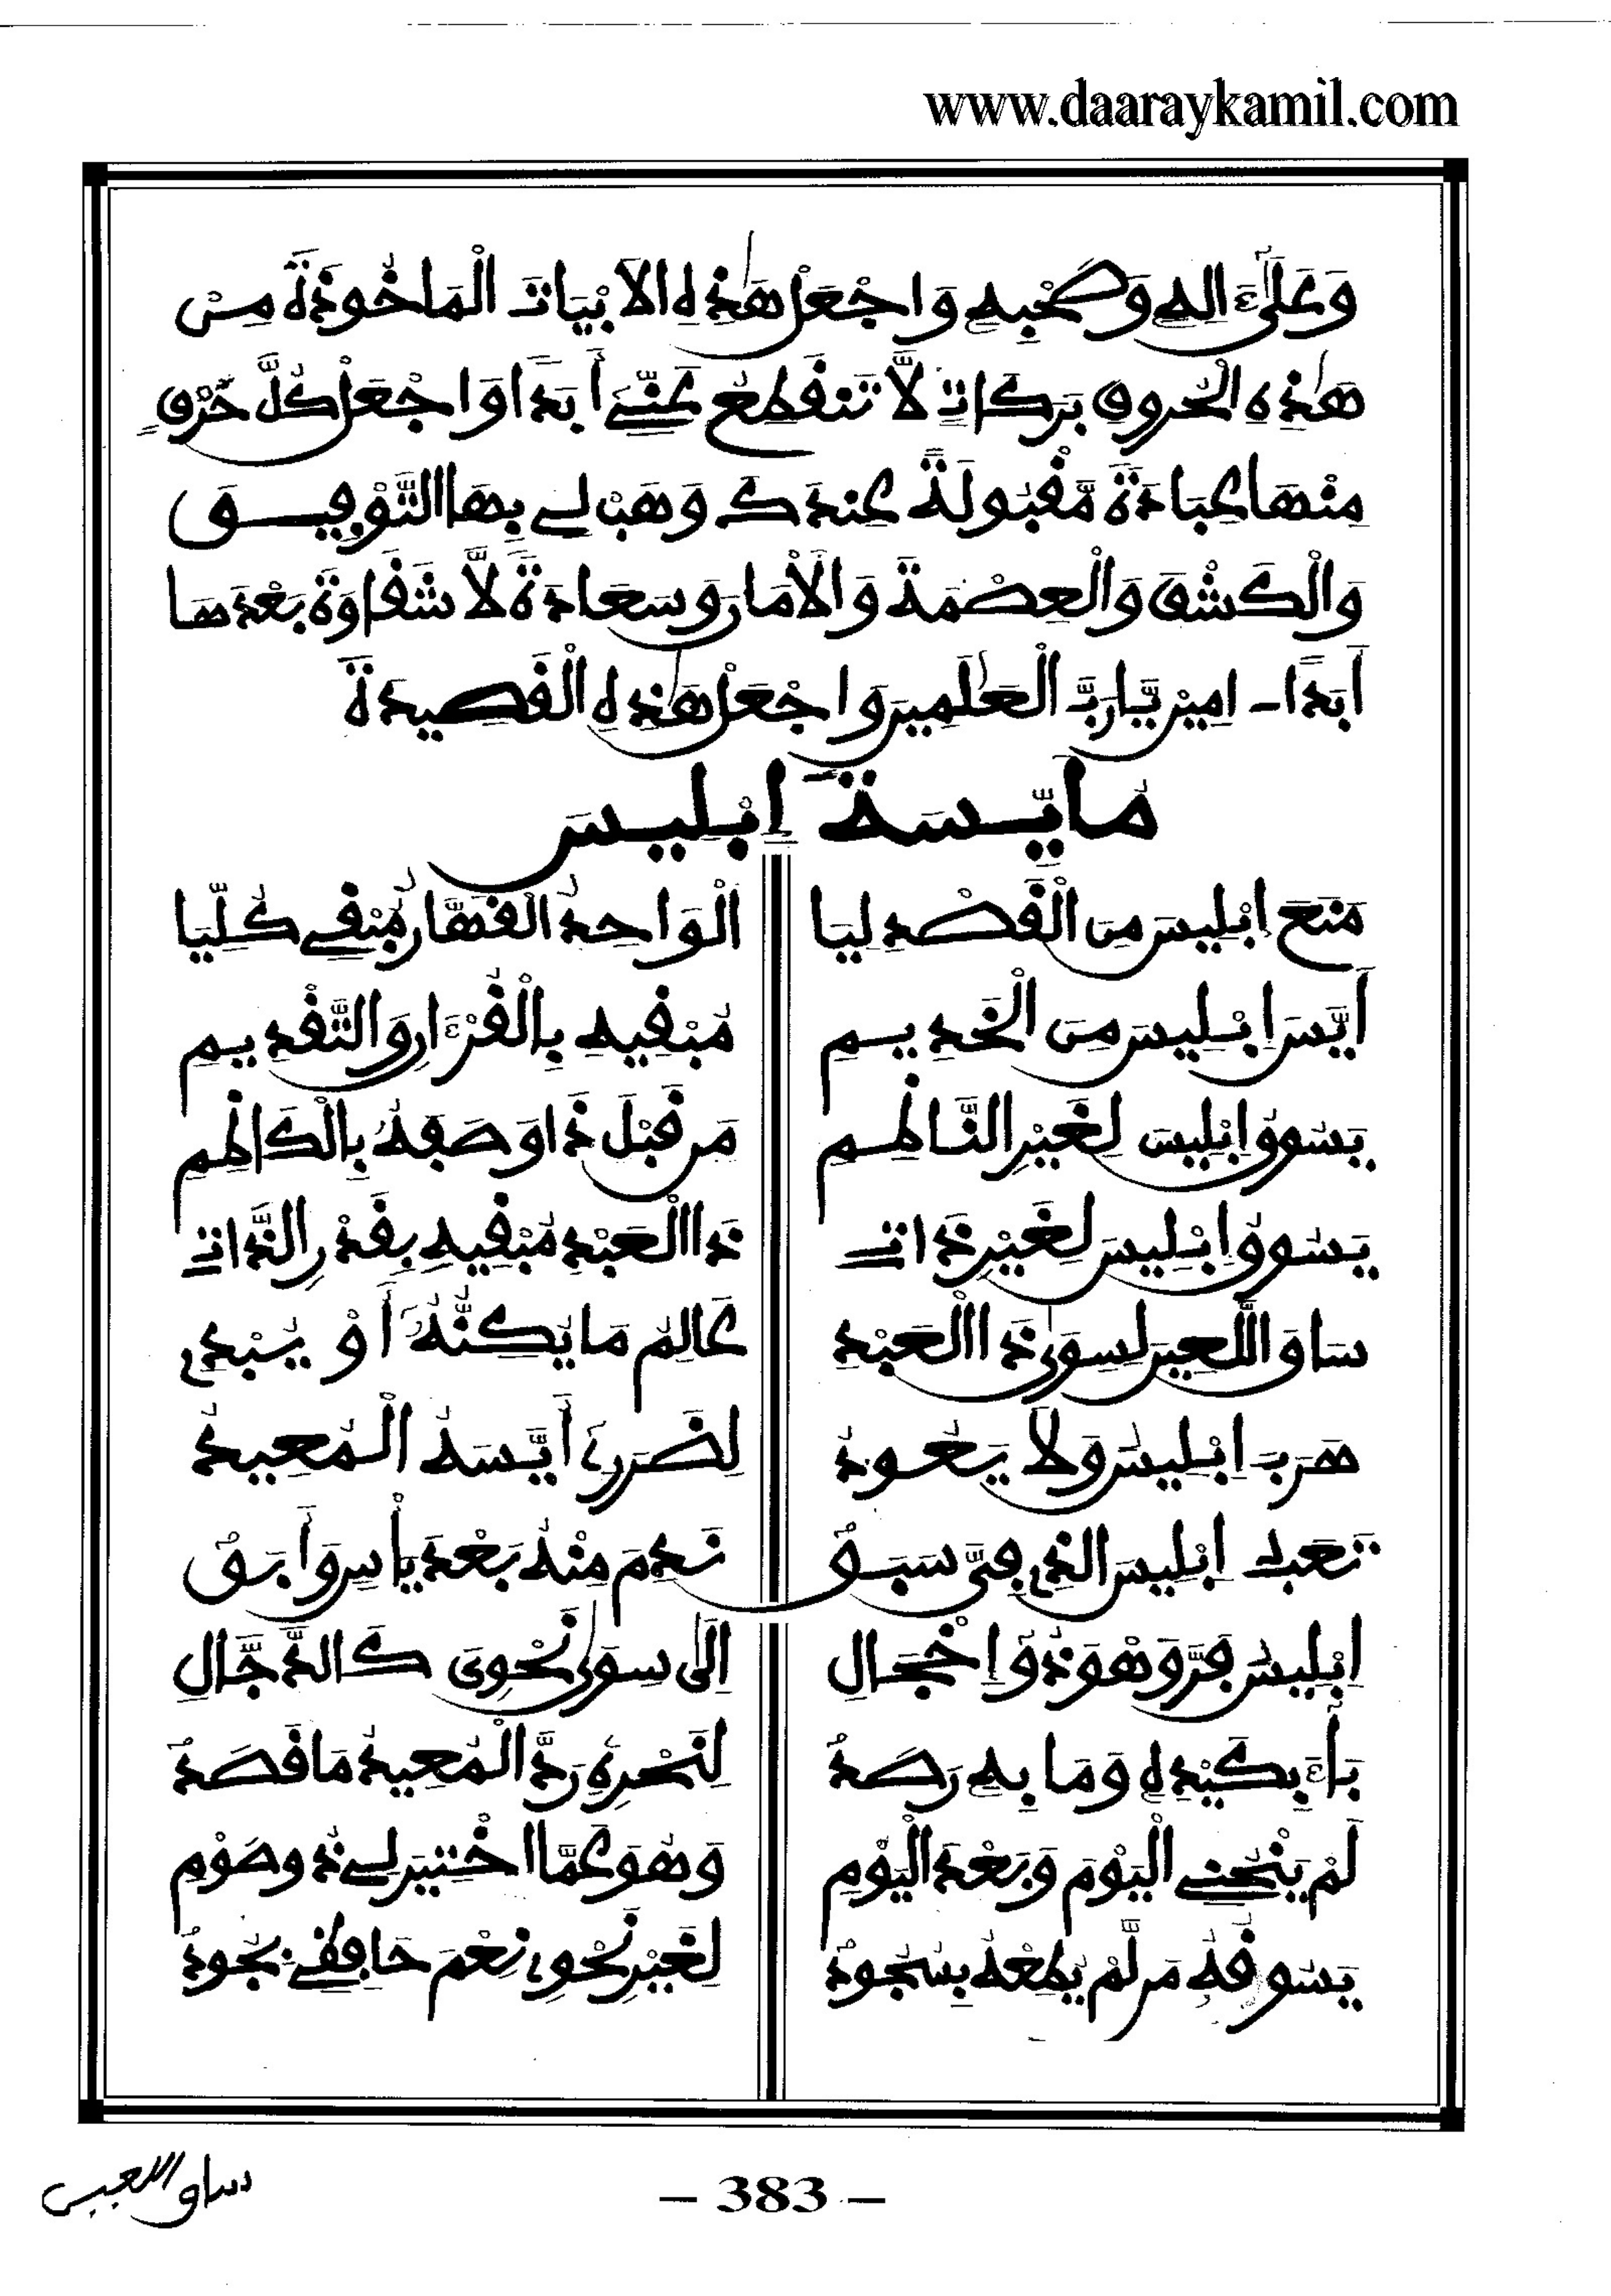 www.daaraykamil.com
وَعَلَىٰ ءَالِهِ وَصَحْبِهِ وَاجْعَلْ هَٰذِهِ الَابْيَاتَ الْمَاخُوذَةَ مِنْ
هَٰذِهِ الْحُرُوفِ بَرَكَاتٍ لَّا تَنقَطِعُ عَنِّي أَبَدًا وَاجْعَلْ كُلَّ حَرْفٍ
مِنْهَا عِبَادَةً مَّقْبُولَةً عِندَكَ وَهَبْ لِي بِهَا التَّوْفِيقَ
وَالْكَشْفَ وَالْعِصْمَةَ وَالْأَمَانَ وَسَعَادَةً لَّا شَقَاوَةَ بَعْدَهَا
أَبَدًا - امِينَ يَّا رَبَّ الْعَٰلَمِينَ وَاجْعَلْ هَٰذِهِ الْقَصِيدَةَ
مُايِّسَةَ إِبْلِيسَ
مَنَعَ إِبْلِيسَ مِنَ الْقَصْدِ لِيَا الْوَاحِدُ الْقَهَّارُ مُبْقِي كُلِّيَا
أَيَّسَ إِبْلِيسَ مِنَ الْخَدِيمِ مُبْقِيهِ بِالْقُرْءَانِ وَالتَّقْدِيمِ
يَسُوقُ إِبْلِيسَ لِغَيْرِ النَّاظِمِ مَن قَبْلَ ذَا وَصَفَهُ بِالْكَاظِمِ
يَسُوقُ إِبْلِيسَ لِغَيْرِ ذَاتِ ذَا الْعَبْدِ مُبْقِيهِ بِقَدْرِ الذَّاتِ
سَاقَ اللَّعِينَ لِسِوَىٰ ذَا الْعَبْدِ عَالِمُ مَا يُكِنُّهُ أَوْ يُبْدِي
هَرَبَ إِبْلِيسُ وَلَا يَعُودُ لِضَرَرِي أَيَّسَهُ الْمُعِيدُ
تَعَبُّدُ إِبْلِيسَ الَّذِي فِيَّ سَبَقْ نَدِمَ مِنْهُ بَعْدَ يَأْسٍ وَأَبَقْ
إِبْلِيسُ فَرَّ وَهْوَ ذُو إِخْجَالِ إِلَىٰ سِوَىٰ نَحْوِيَ كَالدَّجَّالِ
بَاءَ بِكَيْدِهِ وَمَا بِهِ رَصَدُ لِنَحْرِهِ رَدَّ الْمُعِيدُ مَا قَصَدُ
لَمْ يَنْحُنِي الْيَوْمَ وَبَعْدَ الْيَوْمِ وَهُوَ عَمَّا اخْتِيرَ لِي ذُو صَوْمِ
يَسُوقُهُ مَن لَّمْ يُطِعْهُ بِسُجُودُ لِغَيْرِ نَحْوِي نِعْمَ حَافِظِي بِجُودُ
ساق اللعين
— 383 —